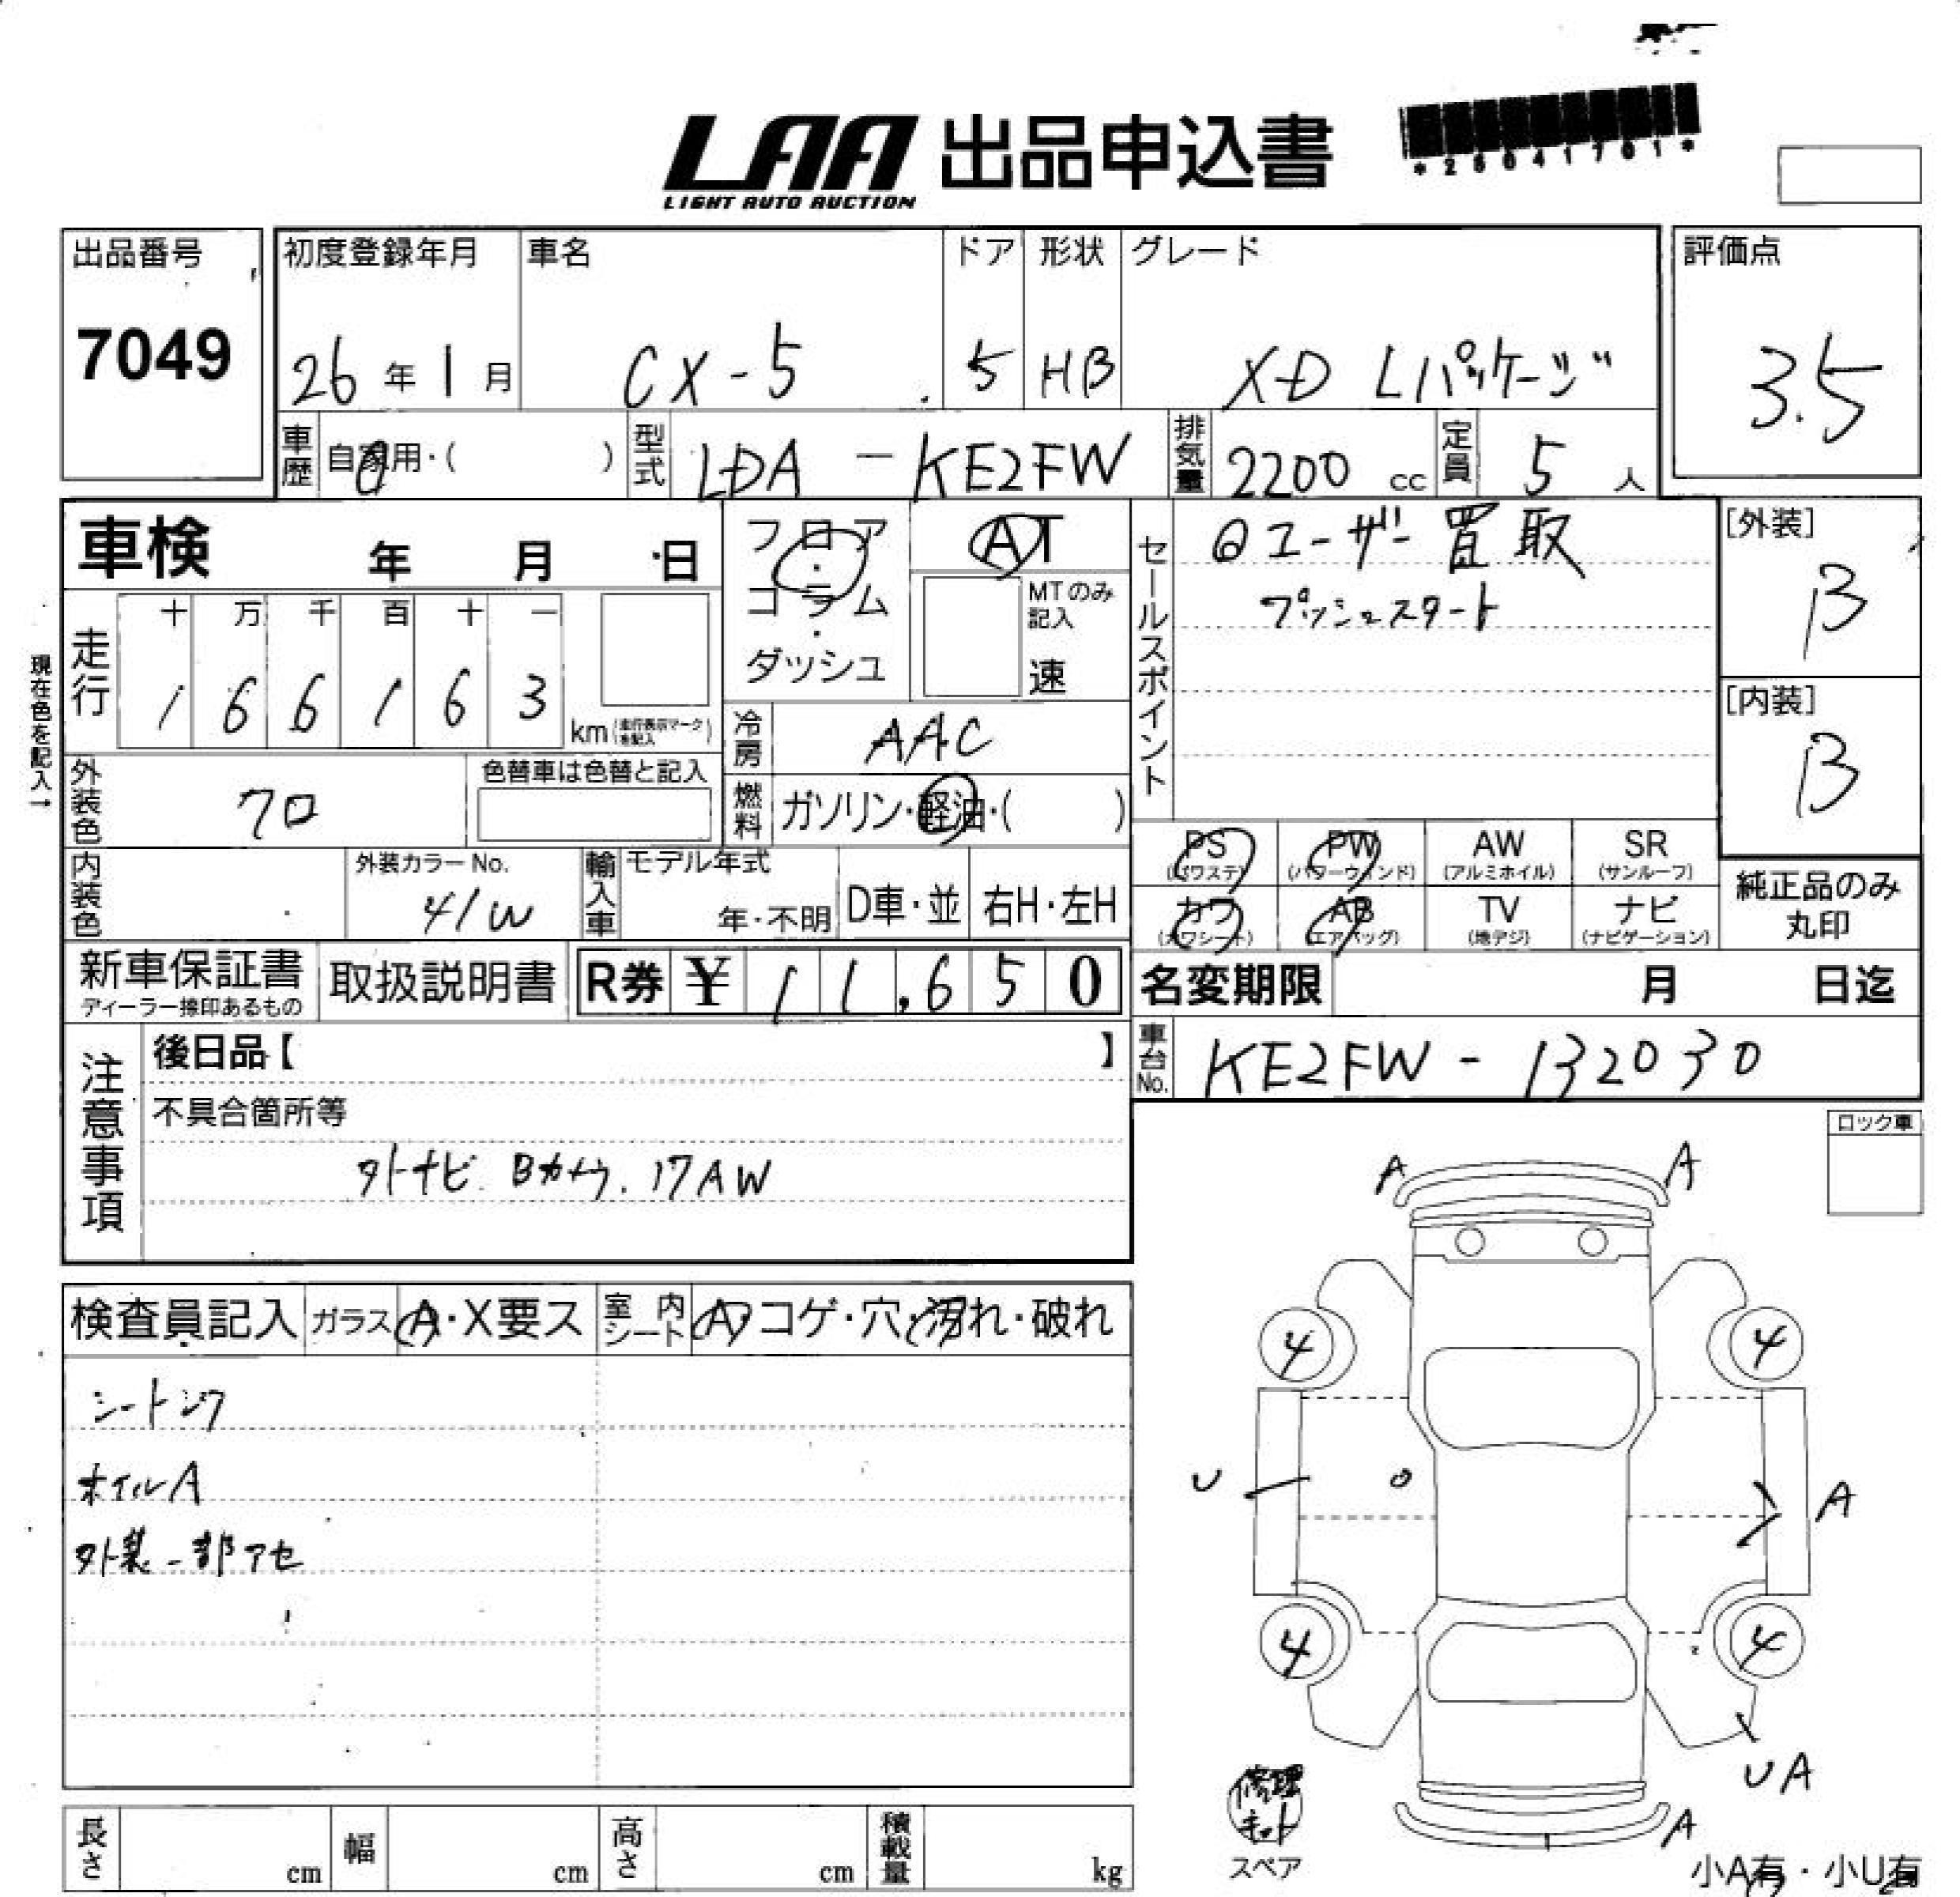 LAA 出品申込書
LIGHT AUTO AUCTION
*26041701*
出品番号
7049
初度登録年月
26年1月
車名
CX-5
ドア
5
形状
HB
グレード
XD Lパッケージ
評価点
3.5
車歴 自家用・( )
型式 LDA-KE2FW
排気量 2200 cc
定員 5 人
車検 年 月 日
フロア・コラム・ダッシュ
AT
MTのみ記入
速
セールスポイント
ユーザー買取
プッシュスタート
[外装]
B
[内装]
B
現在色を記入→
走行
十 万 千 百 十 一
1 6 6 1 6 3
km(走行表示マークを記入)
冷房 AAC
外装色 クロ
色替車は色替と記入
燃料 ガソリン・軽油・( )
内装色
外装カラーNo.
41W
輸入車
モデル年式
年・不明
D車・並
右H・左H
PS (パワステ)
PW (パワーウィンド)
AW (アルミホイル)
SR (サンルーフ)
カワ (カワシート)
AB (エアバッグ)
TV (地デジ)
ナビ (ナビゲーション)
純正品のみ
丸印
新車保証書
ディーラー捺印あるもの
取扱説明書
R券 ¥ 11,650
名変期限 月 日迄
車台No. KE2FW-132030
注意事項
後日品【 】
不具合箇所等
外ナビ Bカメラ. 17AW
ロック車
検査員記入
ガラス A・X要ス
室内シート A・コゲ・穴・汚れ・破れ
シートシワ
ホイルA
外装一部アセ
A A
4 4
U A
4 4
UA
A
修理キット
スペア
小A有・小U有
長さ cm
幅 cm
高さ cm
積載量 kg